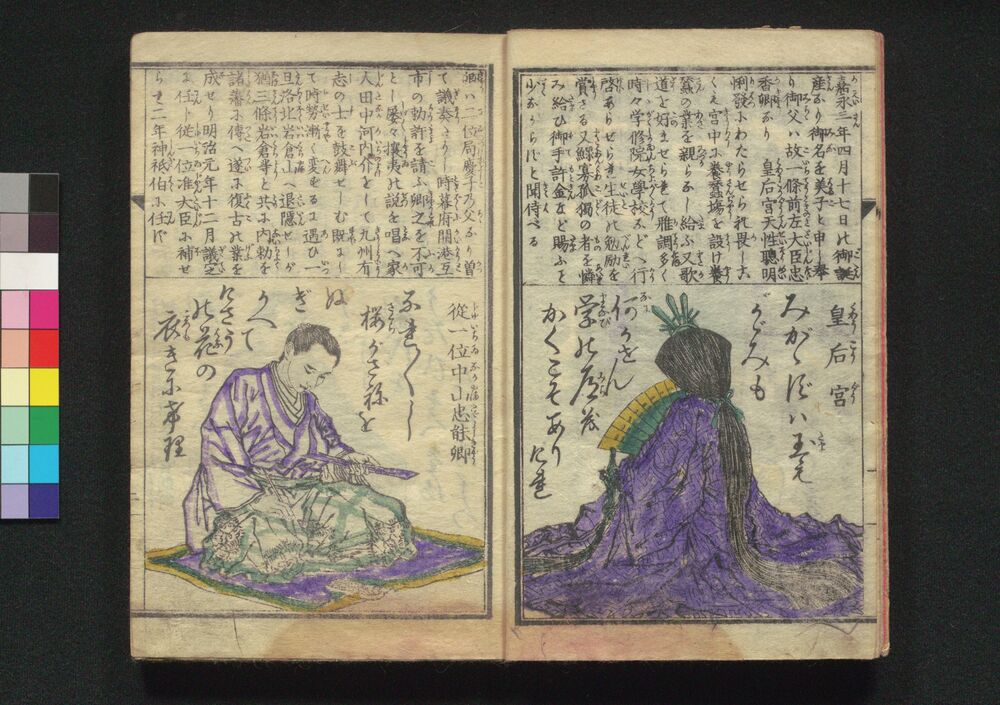 嘉永三年四月十七日の御誕
産なり御名を美子と申し奉
り御父ハ故一條前左大臣忠
香卿なり　皇后宮天性聰明
怜悧にわたらせられ畏しこ
くも宮中に養蠶塲を設け養
蠶の業を親らなし給ふ又歌
道を好ませられて雅調多く
時々学修院女學校などへ行
啓あらせられ生徒の勉励を
賞さる又鰥寡孤獨の者を憐
み給ひ御手許金など賜ふと
少なからずと聞侍べる
皇后宮
みがゝずハ玉も
かゞみも
何かせん
学の道も
かくこそあり
けれ
卿ハ二位局慶子の父なり曽
て議奏たりし時幕府開港互
市の勅許を請ふ卿之を不可
とし屡々攘夷の説を唱へ家
人田中河内介をして九州有
志の士を鼓舞せしむ既にし
て時勢漸く変ずるに遇ひ一
旦洛北岩倉山へ退隠せしが
猶三條岩倉等と共に内勅を
諸藩に傳へ遂に復古の業を
成せり明治元年十二月議定
に任じ従一位准大臣に補せ
らせ二年神祇伯に任ず
從一位中山忠能卿
なれ〱し
桜がさねを
ぬ
ぎ
かへて
けさう
の花の
衣きにけり